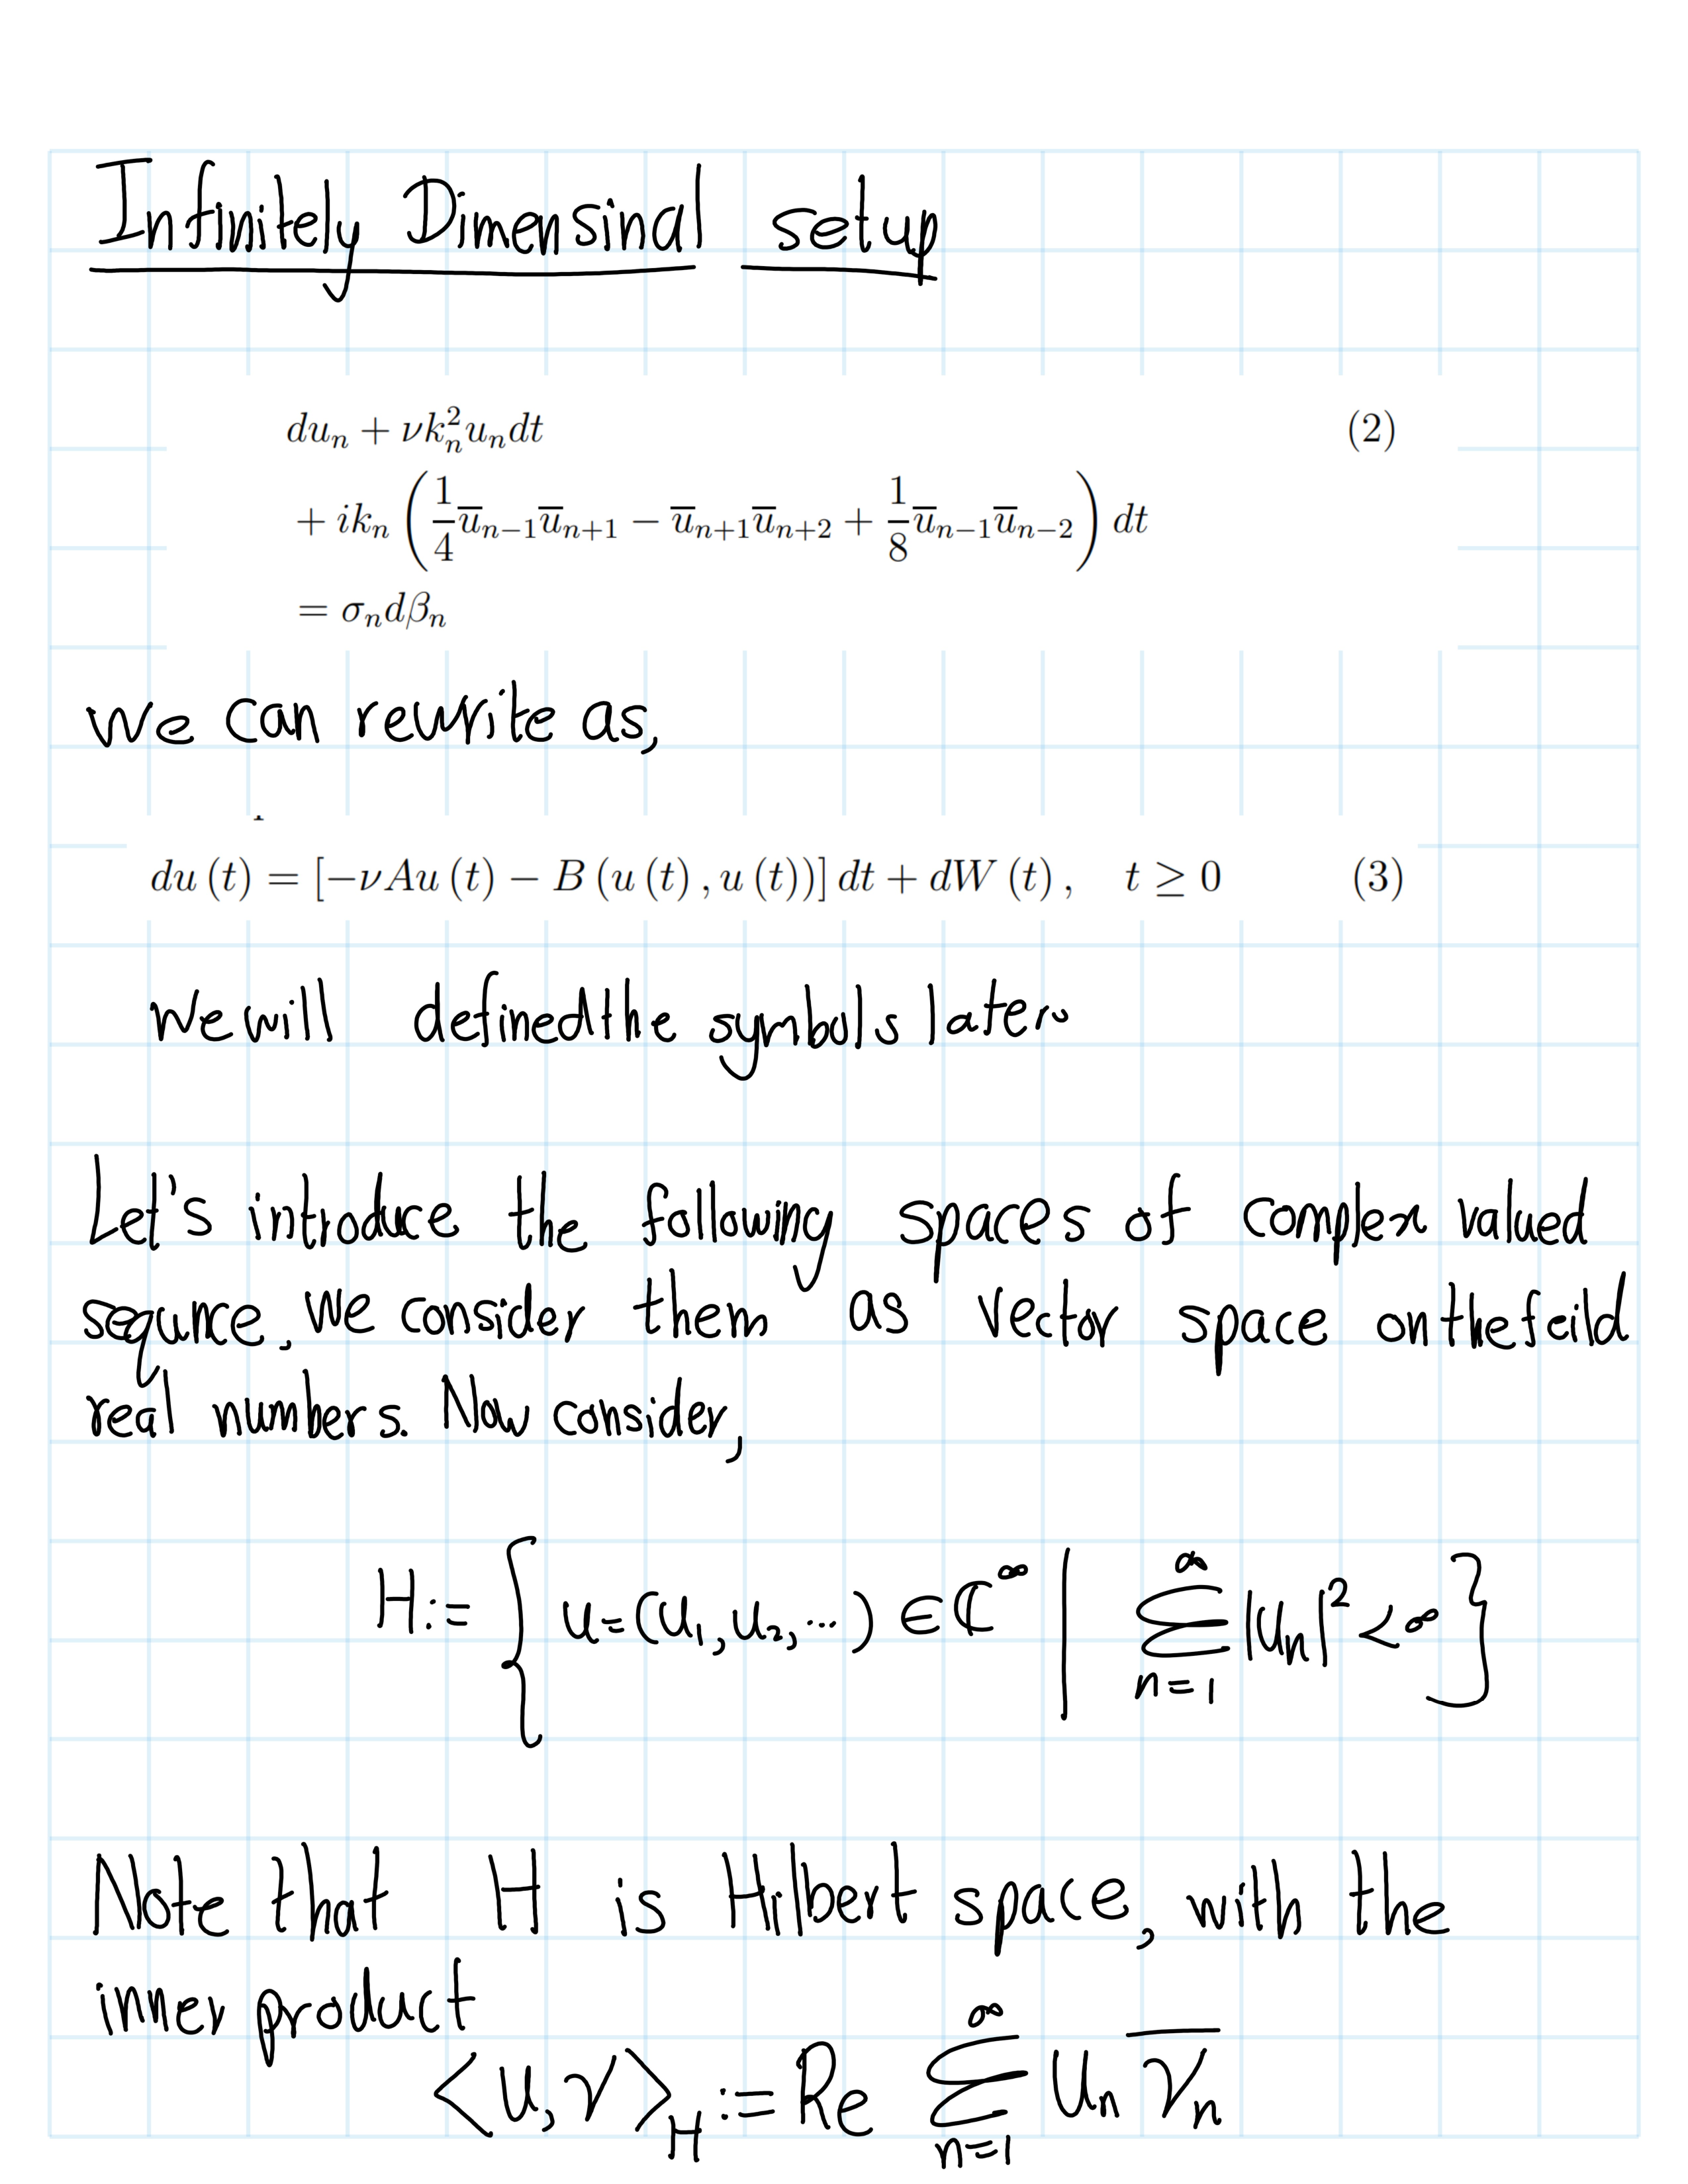 Infinitely Dimensinal setup
du_n + νk_n^2 u_n dt (2)
+ ik_n ( 1/4 ū_{n−1} ū_{n+1} − ū_{n+1} ū_{n+2} + 1/8 ū_{n−1} ū_{n−2} ) dt
= σ_n dβ_n
we can rewrite as,
du (t) = [−νAu (t) − B (u (t) , u (t))] dt + dW (t) , t ≥ 0 (3)
We will definedthe symbols later.
Let's introduce the following spaces of complex valued
sequnce, we consider them as vector space on the feild
real numbers. Now consider,
H := { u = (u_1, u_2, ...) ∈ ℂ^∞ | ∑_{n=1}^∞ |u_n|^2 < ∞ }
Note that H is Hilbert space, with the
inner product
<u, v>_H := Re ∑_{n=1}^∞ u_n \overline{v_n}